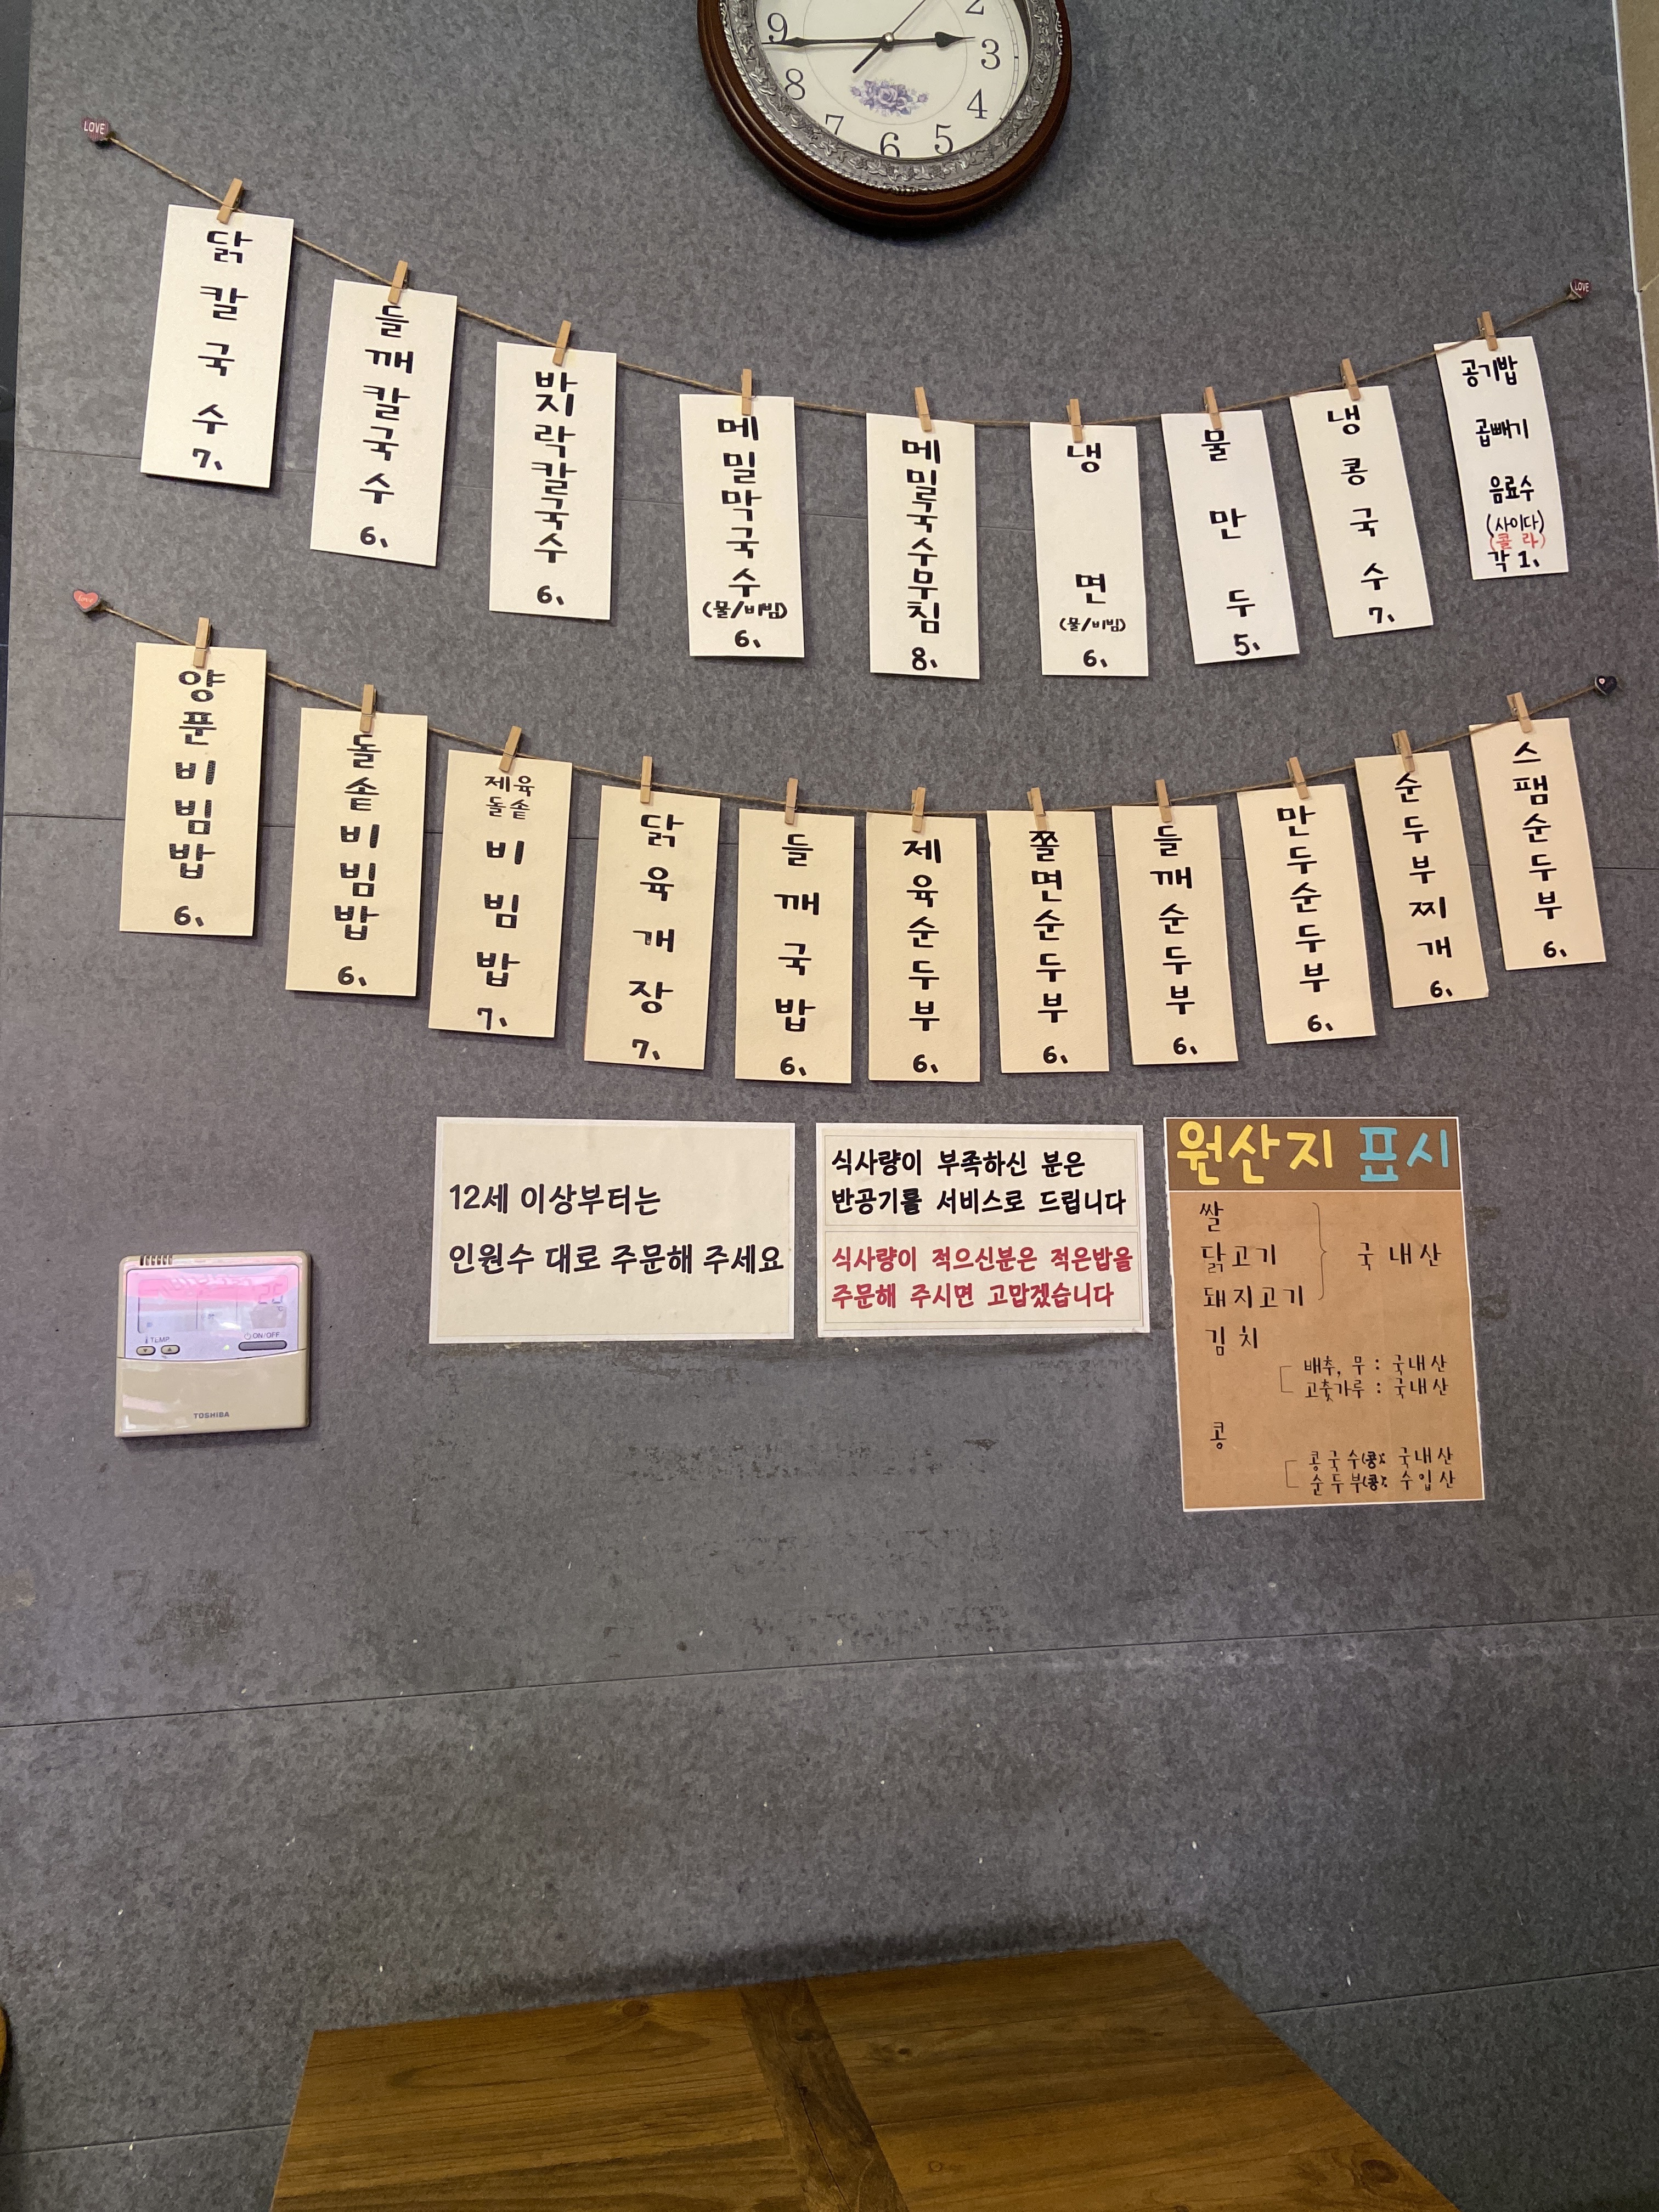 9 2 3 8 4 7 6 5
LOVE
LOVE
닭칼국수
7、
들깨칼국수
6、
바지락칼국수
6、
메밀막국수
(물/비빔)
6、
메밀국수무침
8、
냉면
(물/비빔)
6、
물만두
5、
냉콩국수
7、
공기밥
곱빼기
음료수
(사이다)
(콜라)
각 1、
Love
양푼비빔밥
6、
돌솥비빔밥
6、
제육
돌솥
비빔밥
7、
닭육개장
7、
들깨국밥
6、
제육순두부
6、
쫄면순두부
6、
들깨순두부
6、
만두순두부
6、
순두부찌개
6、
스팸순두부
6、
12세 이상부터는
인원수 대로 주문해 주세요
식사량이 부족하신 분은
반공기를 서비스로 드립니다
식사량이 적으신분은 적은밥을
주문해 주시면 고맙겠습니다
원산지 표시
쌀
닭고기 국내산
돼지고기
김치
배추, 무 : 국내산
고춧가루 : 국내산
콩
콩국수(콩): 국내산
순두부(콩): 수입산
TEMP
ON/OFF
TOSHIBA